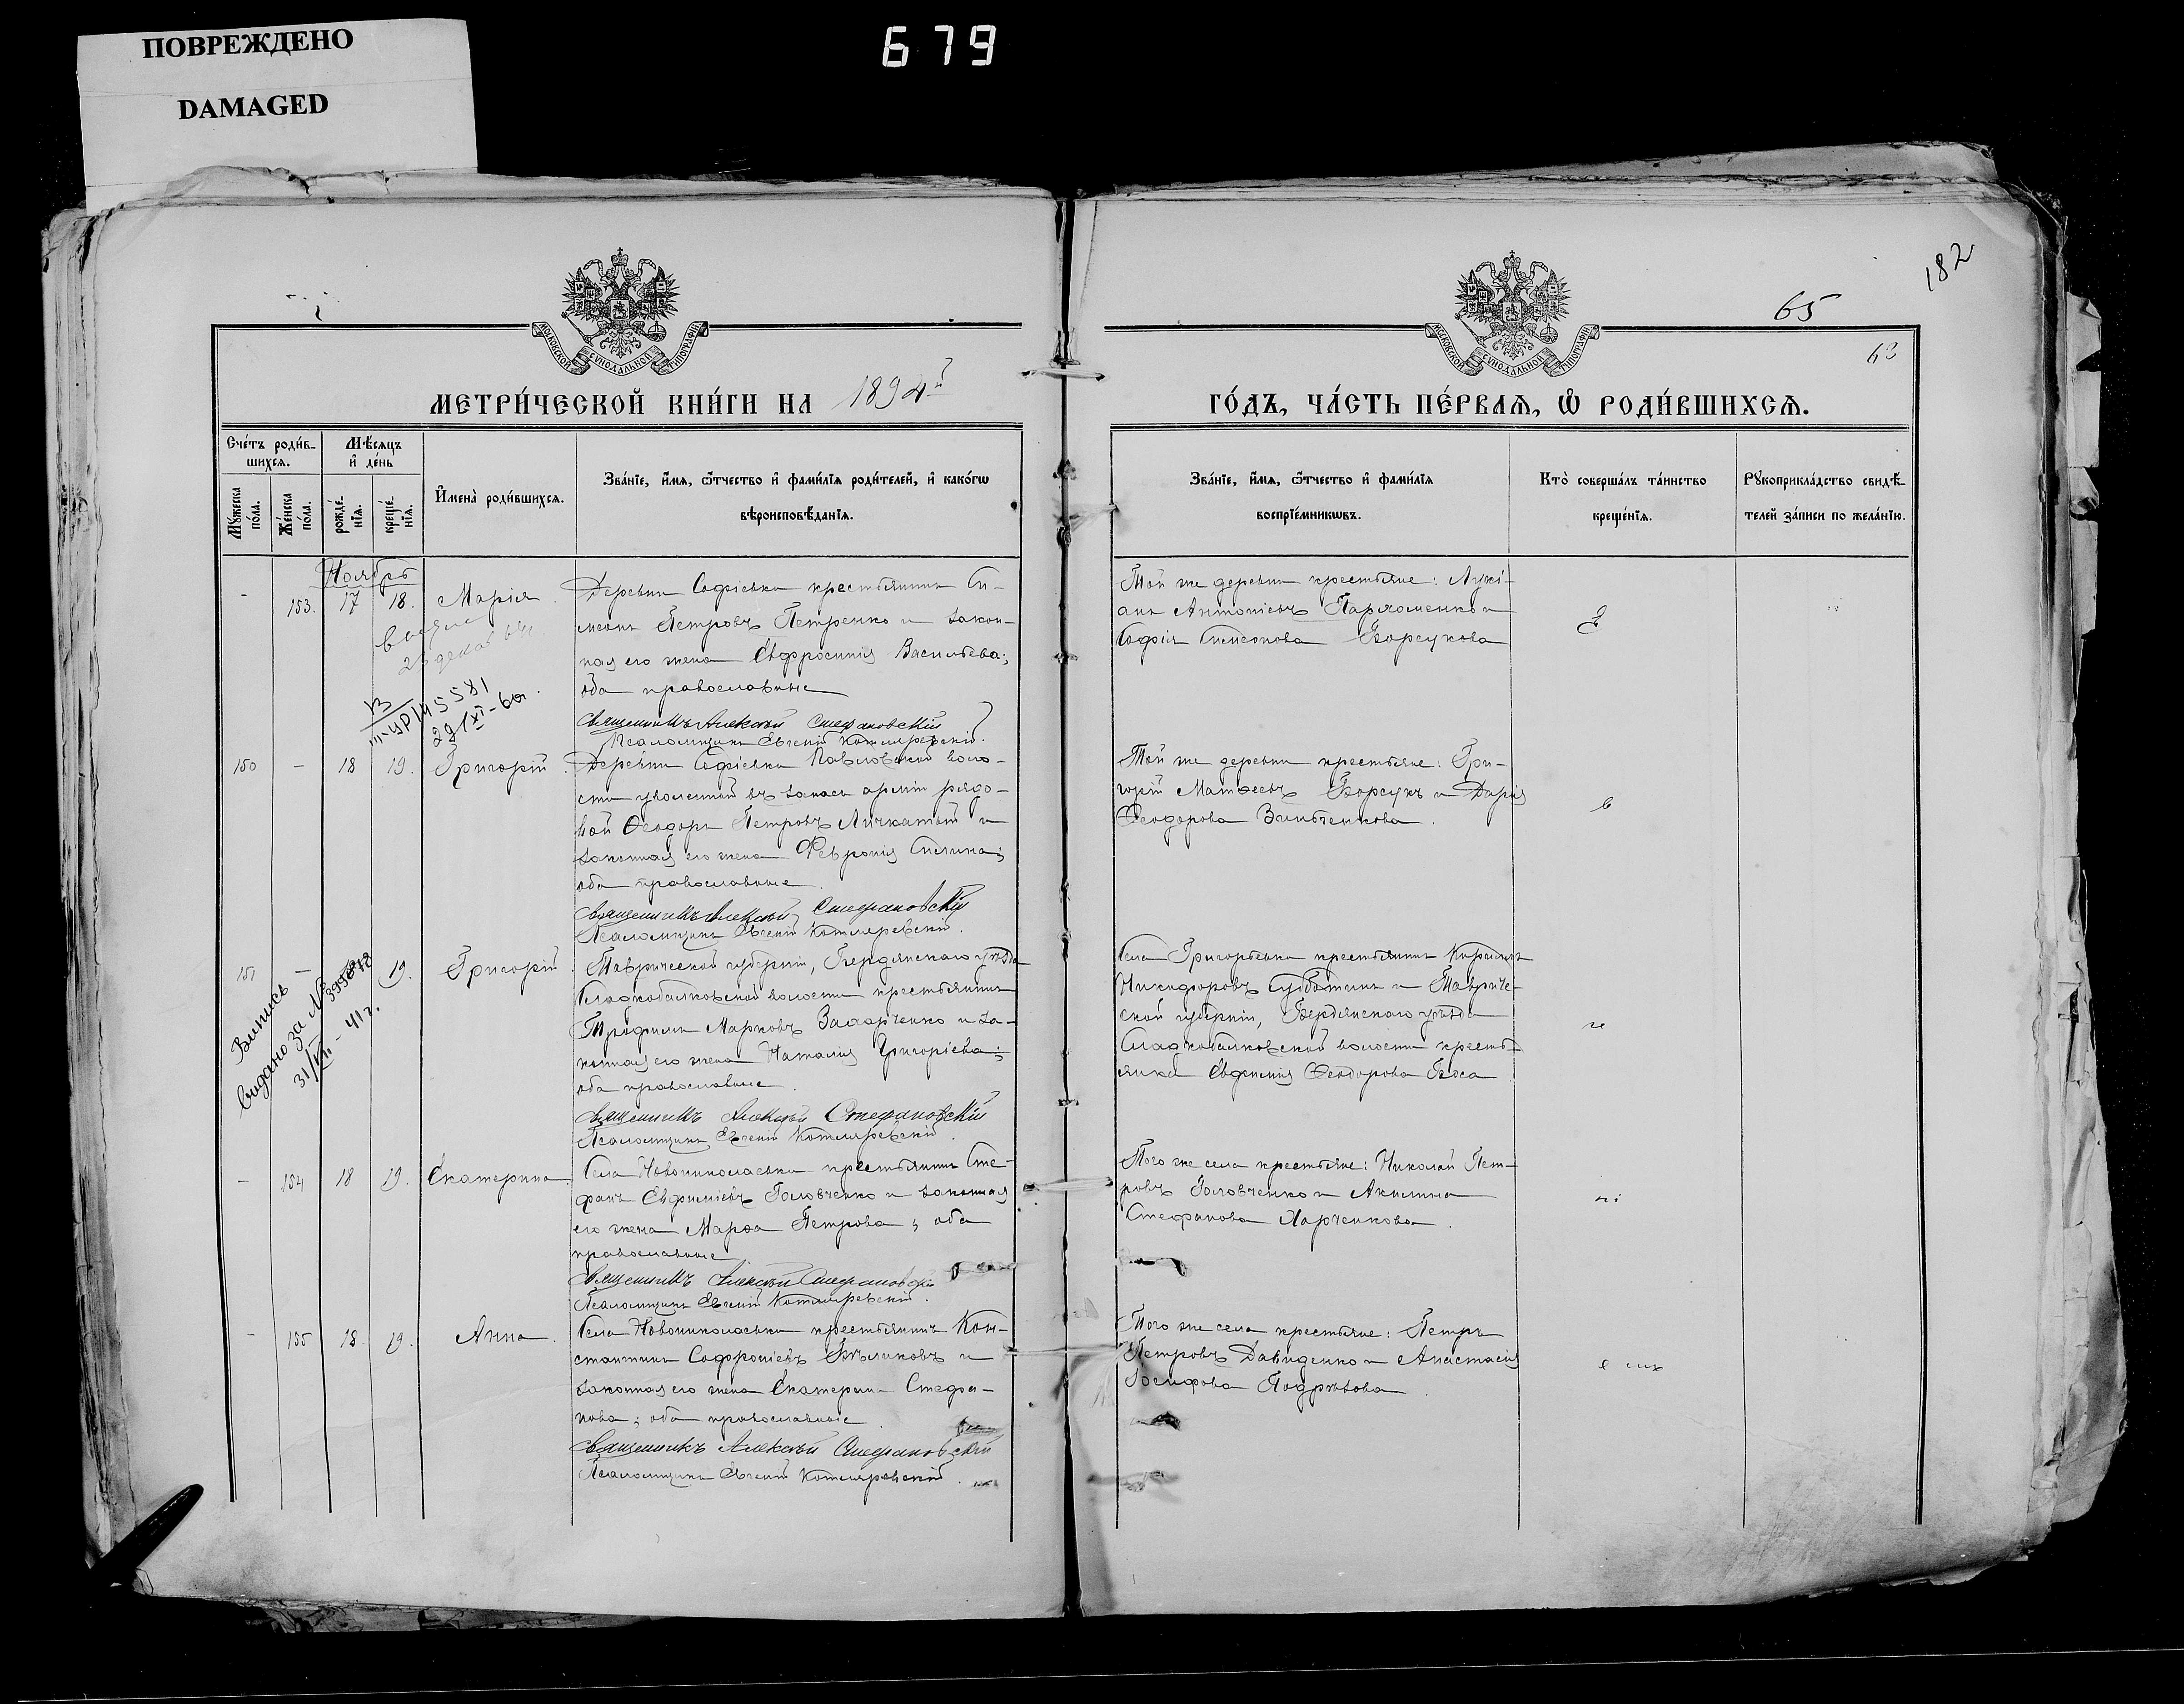 ПОВРЕЖДЕНО
DAMAGED
679
182
65
63
МОСКОВСКОЙ СѴНОДАЛЬНОЙ ТИПОГРАФІИ
МОСКОВСКОЙ СѴНОДАЛЬНОЙ ТИПОГРАФІИ
МЕТРИ́ЧЕСКОЙ КНИ́ГИ НА 1894й
ГО́ДЪ, ЧА́СТЬ ПЕ́РВАЯ, Ѡ РОДИ́ВШИХСЯ.
Сче́тъ роди́в-
шихся.
Мѣ́сяцъ
и де́нь
Мꙋ́жеска по́ла.
Же́нска по́ла.
рожде́-
нїя.
креще́-
нїя.
Имена̀ роди́вшихся.
Зва́нїе, и́мя, ѻ́тчество и фами́лїя роди́телей, и како́гѡ
вѣроисповѣ́данїя.
Зва́нїе, и́мя, ѻ́тчество и фами́лїя
воспрїе́мникѡвъ.
Кто̀ соверша́лъ та́инство
креще́нїя.
Рꙋкоприкла́дство свидѣ́-
телей за́писи по жела́нїю.
Ноябрь
- 153. 17 18. Марія.
Деревни Софіевки крестьянинъ Си-
меонъ Петровъ Петренко и закон-
ная его жена Евфросинія Васильева;
оба православные
Священникъ Алексѣй Стефановскій
Псаломщикъ Евгеній Котляревскій.
Той же деревни крестьяне: Лукі-
анъ Антоніевъ Пархоменко и
Софія Симеонова Борсукова
150 – 18 19. Григорій.
Деревни Софіевки Павловской воло-
сти уволенный въ запасъ арміи рядо-
вой Ѳеодоръ Петровъ Личкатый и
законная его жена Февронія
оба православные.
Священникъ Алексѣй Стефановскій
Псаломщикъ Евгеній Котляревскій.
Той же деревни крестьяне: Гри-
горій Матѳеевъ Борсукъ и Дарія
Ѳеодорова Зинченкова.
151 – 19. Григорій.
Выпись
выдано за №
31/VII - 41 г.
Таврической губерніи, Бердянскаго уѣзда
Сладкобалковской волости крестьянинъ
Трофимъ Марковъ Захарченко и за-
конная его жена Наталія Григоріева;
оба православные.
Священникъ Алексѣй Стефановскій
Псаломщикъ Евгеній Котляревскій.
Села Григорьевки крестьянинъ Кириллъ
Никифоровъ Субботинъ и Тавриче-
ской губерніи, Бердянскаго уѣзда
Сладкобалковской волости кресть-
янка Евфимія Ѳеодорова
- 154 18 19. Екатерина.
Села Новониколаевки крестьянинъ Сте-
фанъ Евфиміевъ Головченко и законная
его жена Марѳа Петрова; оба
православные
Священникъ Алексѣй Стефановскій
Псаломщикъ Евгеній Котляревскій.
Того же села крестьяне: Николай Пет-
ровъ Головченко и Акилина
Стефанова Харченкова.
- 155 18. 19. Анна.
Села Новониколаевки крестьянинъ Кон-
стантинъ Софроніевъ Бѣликовъ и
законная его жена Екатерина Стефа-
нова; оба православные.
Священникъ Алексѣй Стефановскій
Псаломщикъ Евгеній Котляревскій.
Того же села крестьяне: Петръ
Петровъ Давиденко и Анастасія
Іосифова Подрѣзова.